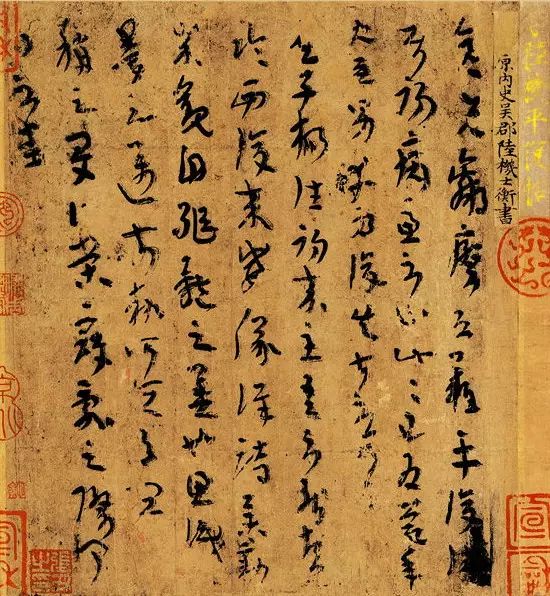 晉陸機平復帖
原內史吳郡陸機士衡書
彥先羸瘵恐難平復往屬
初病慮不止此此已為慶承
使唯男幸為復失前憂耳
吳子楊往初來主吾不能盡
臨西復來威儀詳跱舉動
成觀自軀體之美也思識
量之邁前勢所恒有宜
稱之夏伯榮寇亂之際聞
問不悉